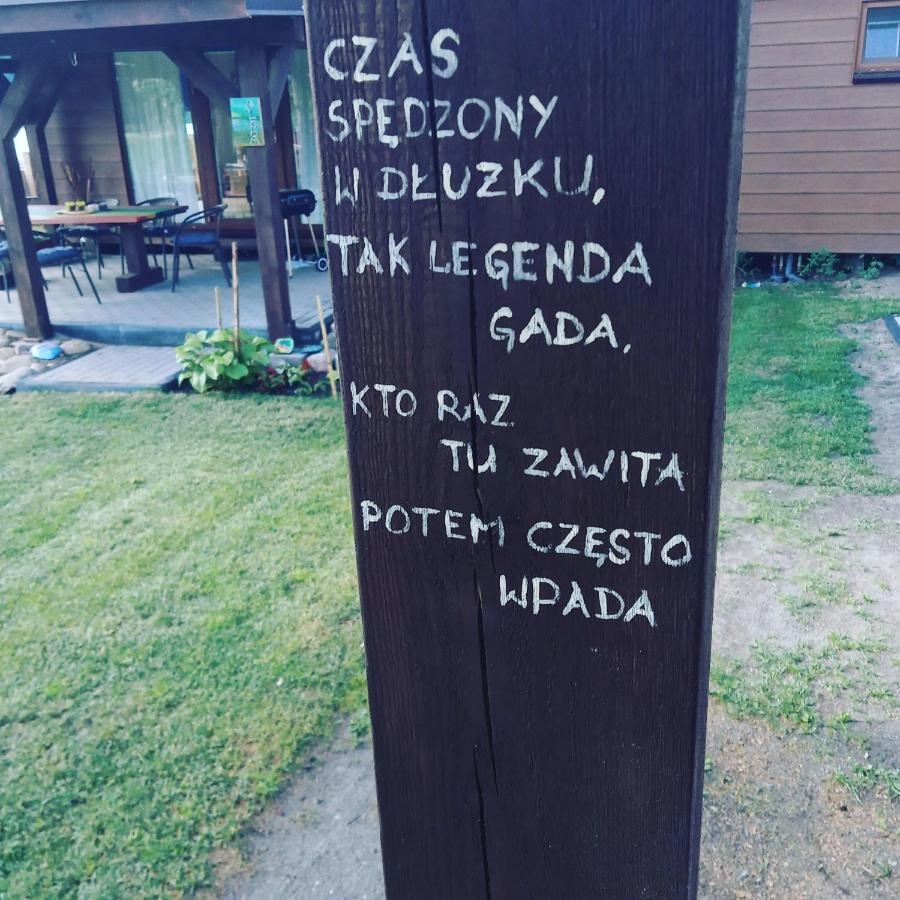 CZAS
SPĘDZONY
W DŁUZKU,
TAK LEGENDA
GADA,
KTO RAZ
TU ZAWITA
POTEM CZĘSTO
WPADA